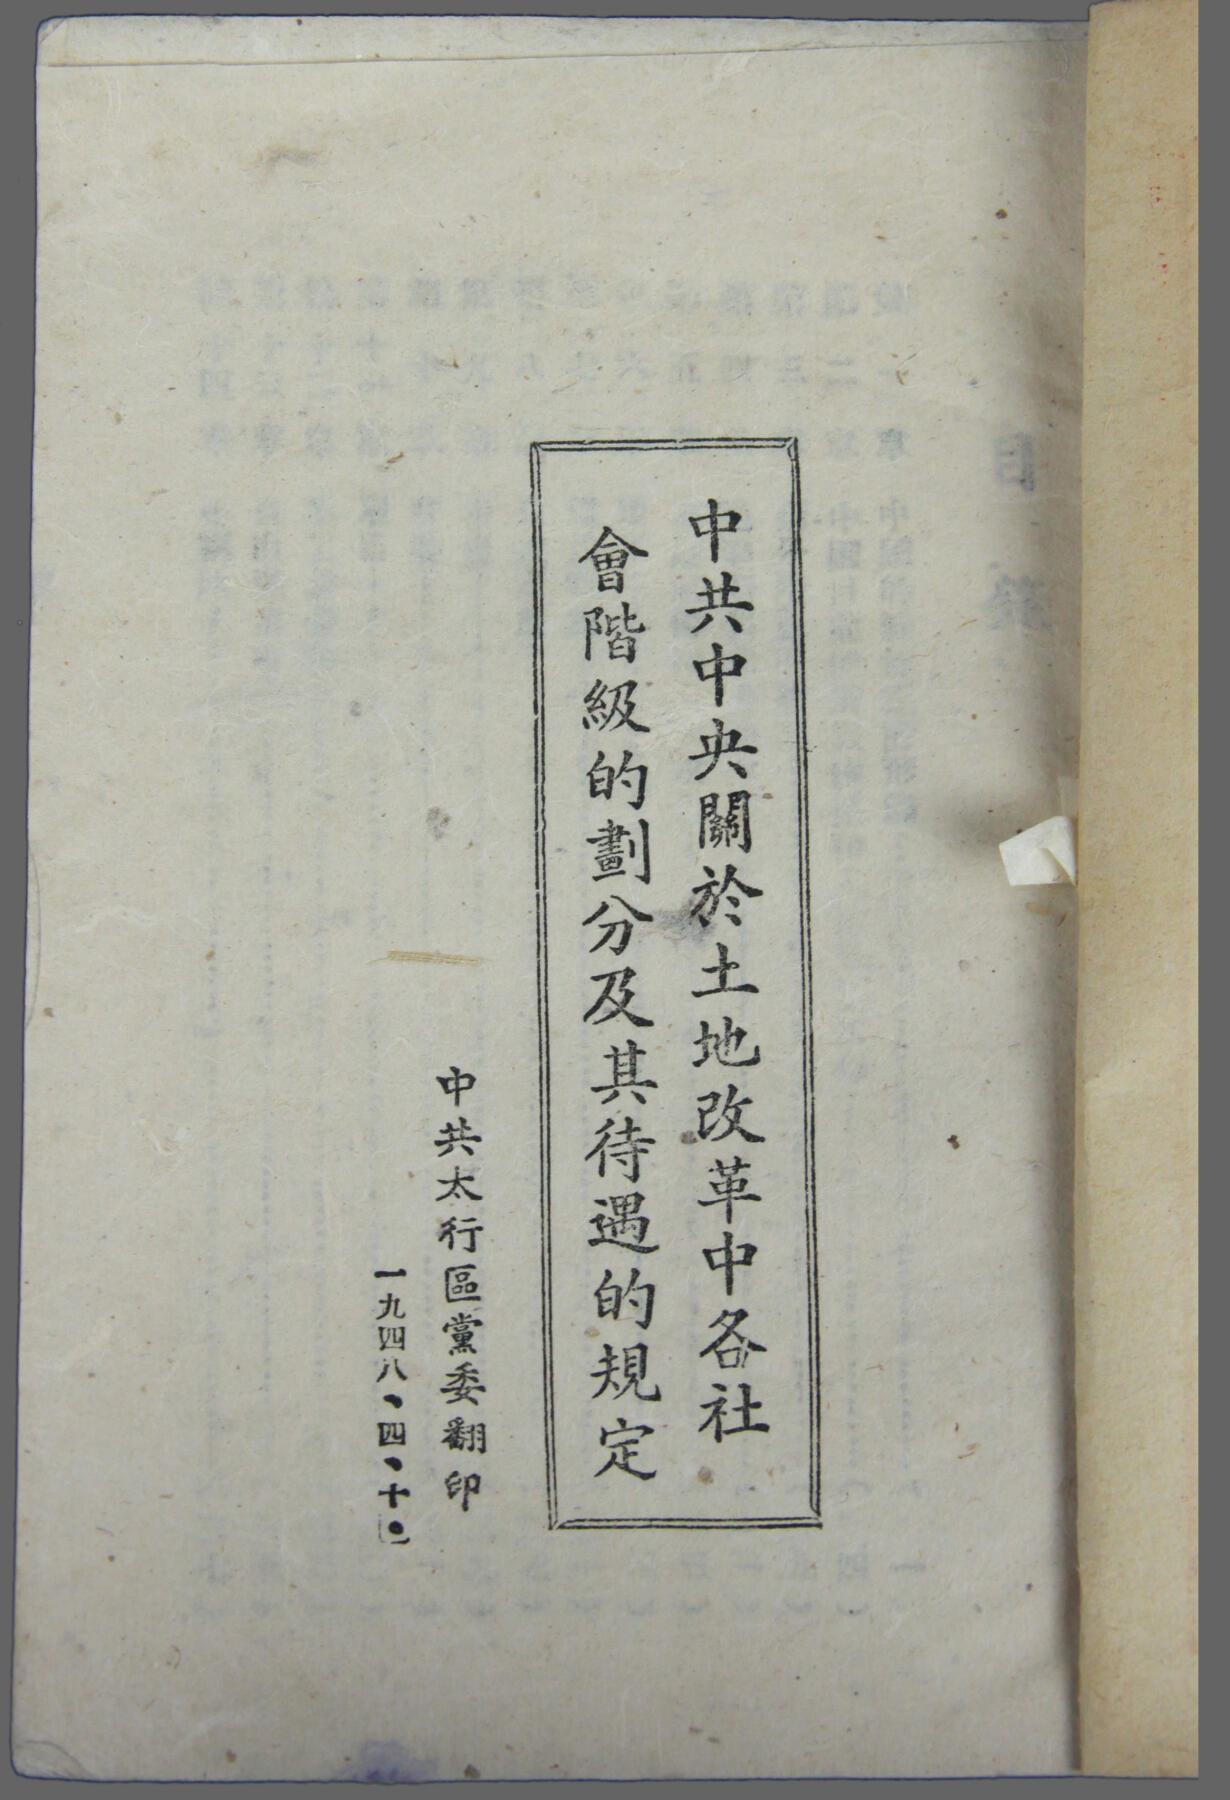 中共中央關於土地改革中各社
會階級的劃分及其待遇的規定
中共太行區黨委翻印
一九四八、四、十、